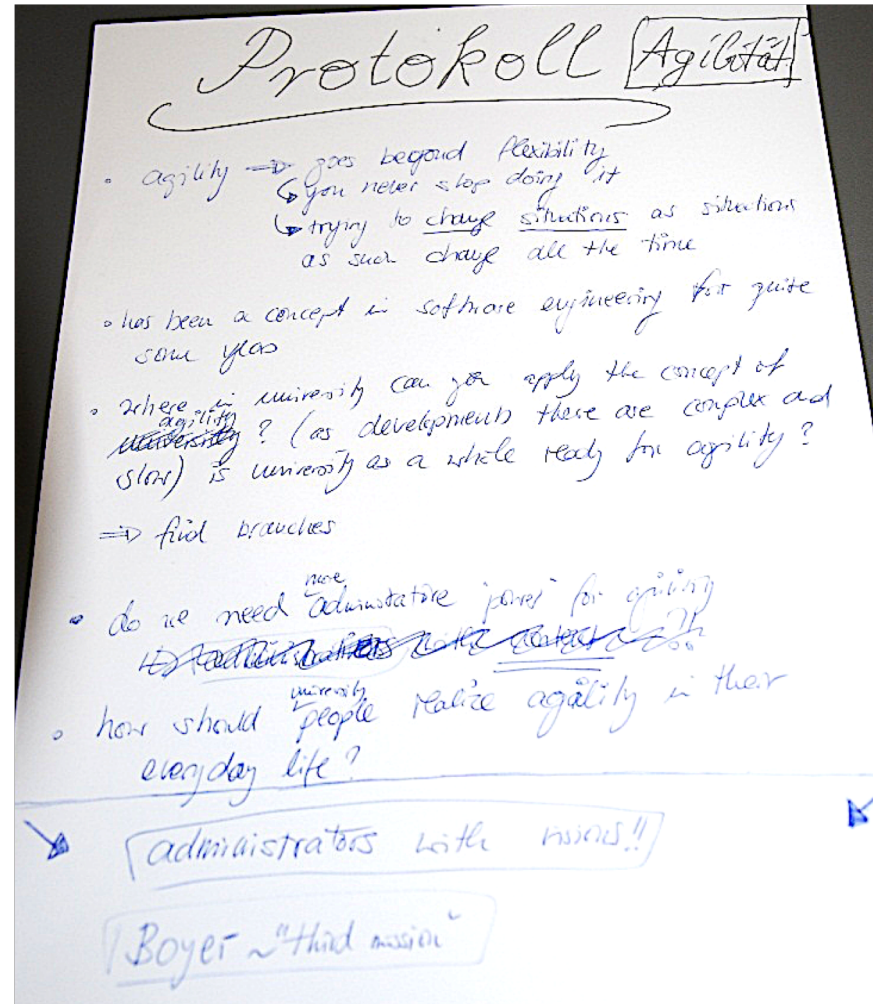 Protokoll Agilität
• agility ⇒ goes beyond flexibility
↳ you never stop doing it
↳ trying to change situations as situations
as such change all the time
• has been a concept in software engineering for quite
some years
• where in university can you apply the concept of
agility
university ? (as developments there are complex and
slow) is university as a whole ready for agility ?
⇒ find branches
more
• do we need administrative 'power' for agility
university
• how should people realize agility in their
everyday life ?
administrators with visions!!
Boyer ~ "third mission"